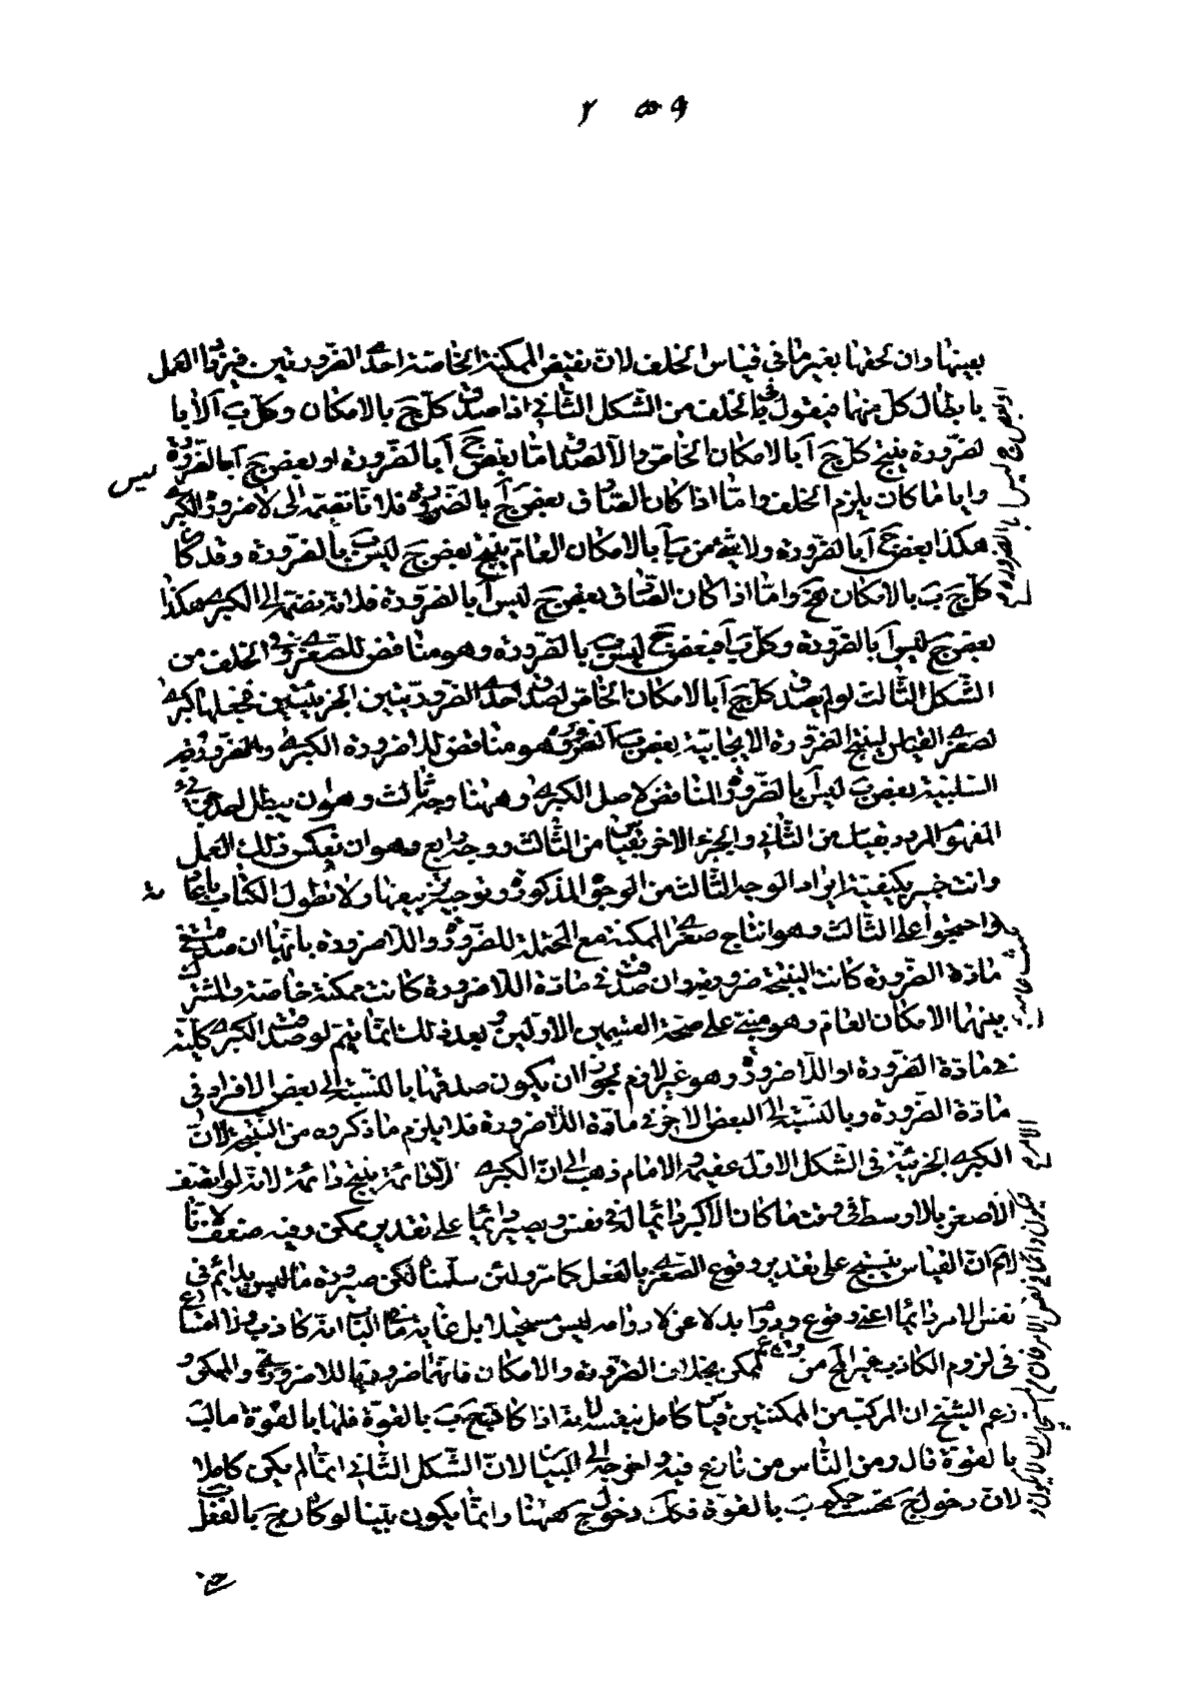 بعينها وان لحقها بغير ما في قياس الخلف لان نقيض الممكنة الخاصة احد الضروريتين فيزداد العمل
بابطال كل منهما فيقول في الخلف من الشكل الثاني اذا صدق كل ج ب بالامكان وكل ب آ لا با
لضرورة ينتج كل ج آ بالامكان الخاص والا لصدق اما بعض ج آ بالضرورة او بعض ج آ بالضرورة
ليس
وايا ما كان يلزم الخلف واما اذا كان الصادق بعض ج آ بالضرورة فلانا نضمه الى لاضرورة الكبرى
هكذا بعض ج آ بالضرورة ولا شئ من ب آ بالامكان العام ينتج بعض ج ليس ب بالضرورة وقد كان
كل ج ب بالامكان هف واما اذا كان الصادق بعض ج ليس آ بالضرورة فلانه نضمه الى الكبرى هكذا
بعض ج ليس آ بالضرورة وكل ب آ فبعض ج ليس ب بالضرورة وهو مناقض للصغرى وفي الخلف من
الشكل الثالث لو لم يصدق كل ج آ بالامكان الخاص لصدق احدى الضروريتين الجزئيتين فنجعلها كبرى
لصغرى القياس لينتج الضرورة الايجابية بعض ب آ بالضرورة وهو مناقض للاضرورة الكبرى والضرورة
السلبية بعض ب ليس آ بالضرورة المناقض لاصل الكبرى وههنا وجه ثالث وهو ان يبطل احد جزئي
المفهوم المردد بقياس من الثاني والجزء الاخر بقياس من الثالث ووجه رابع وهو ان يعكس ذلك العمل
وانت خبير بكيفية ايراد الوجه الثالث من الوجوه المذكورة وتوجيه تربيعها ولا نطول الكتاب باعا
دته
واحتجوا على الثالث وهو انتاج صغرى الممكنة مع المحتملة للضرورة واللاضرورة بانها ان صدقت في
مادة الضرورة كانت النتيجة ضرورية وان صدقت في مادة اللاضرورة كانت ممكنة خاصة والمشترك
بينهما الامكان العام وهو مبني على صحة القسمين الاولين وبعد ذلك انما يتم لو صدقت الكبرى كلية
في مادة الضرورة او اللاضرورة وهو غير لازم لجواز ان يكون صدقها بالنسبة الى بعض الافراد في
مادة الضرورة وبالنسبة الى البعض الاخر في مادة اللاضرورة فلا يلزم ما ذكروه من النتيجة لان
الكبرى الجزئية في الشكل الاول عقيمة والامام ذهب الى ان الكبرى الدائمة ينتج دائمة لانه لو اتصف
الاصغر بالاوسط في وقت ما كان الاكبر دائما له في نفس ويصير دائما على تقدير ممكن وفيه ضعف لانا
لانم ان القياس ينتج على تقدير وقوع الصغرى بالفعل كما مر ولئن سلمناه لكن صيرورة ما ليس بدائم في
نفس الامر دائما اعني وقوع دوامه بدلا عن لادوامه ليس مستحيلا بل غاية ما في الباب انه كاذب ولا امتناع
في لزوم الكاذب غير المحال من وقوع ممكن بخلاف الضرورة والامكان فانهما ضروريتها للاضروري والممكن و
زعم الشيخ ان المركب من الممكنتين قياس كامل بين بنفسه لانه اذا كان ج ب بالقوة فلها بالقوة ما لب
بالقوة قال ومن الناس من نازع فيه واحوجه الى البيان لان الشكل الثاني انما لم يكن كاملا
لان دخول ج تحت حكم ب بالقوة فكك دخول ج ههنا وانما يكون بينا لو كان ج ب بالفعل